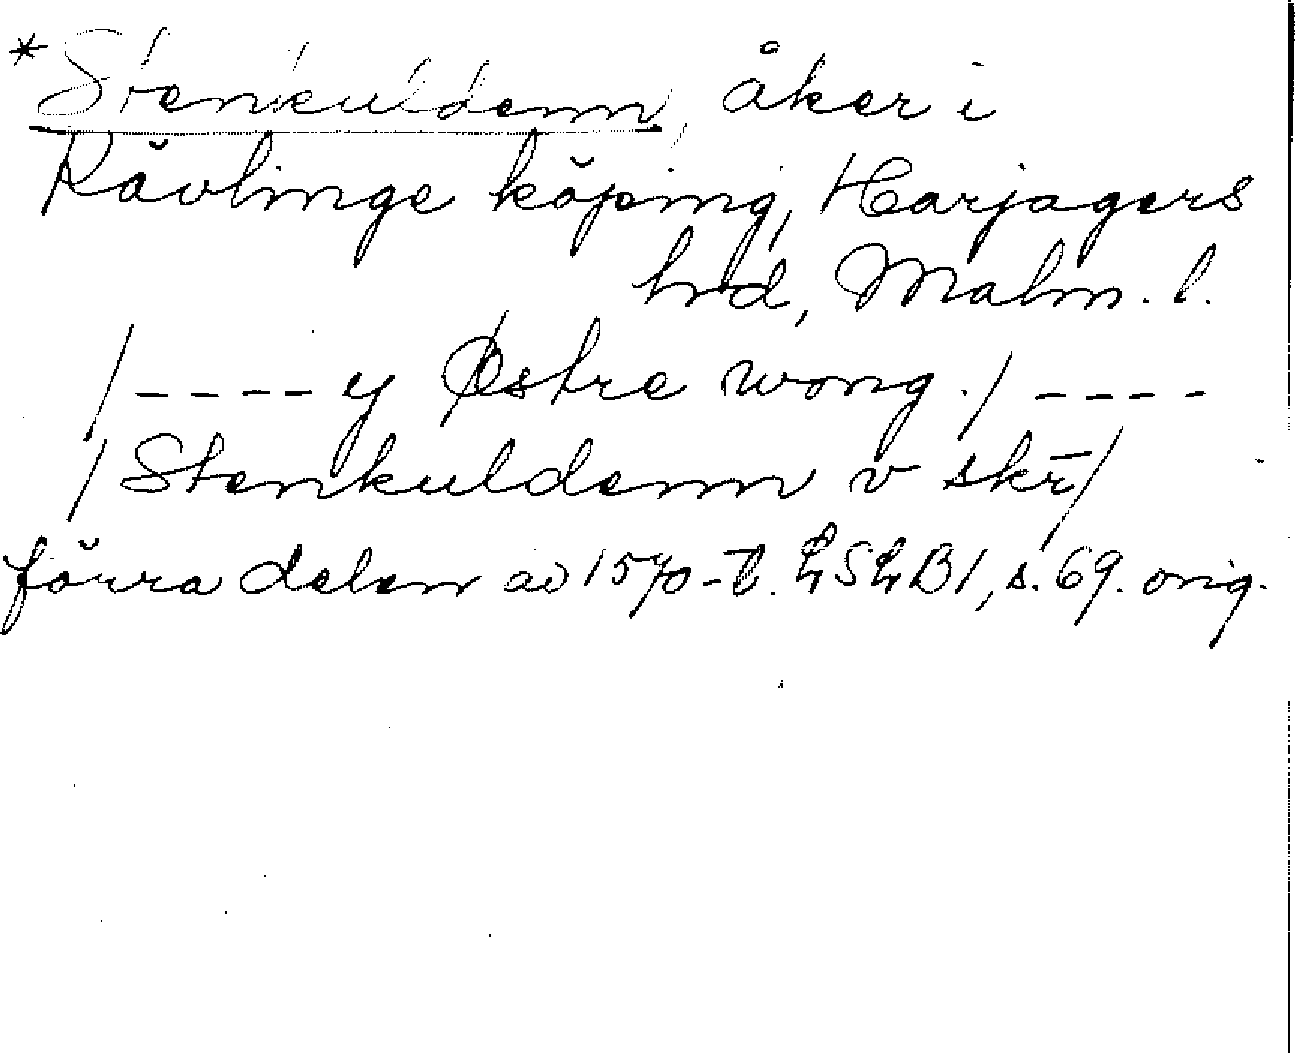 *Stenkuldenn, åker i
Kävlinge köping, Harjagers
hrd, Malm. l.
/---- y Østre wong ./ ----
/Stenkuldenn v skr̄/
förra delen av 1570-t. LSLB1, s. 69. orig.